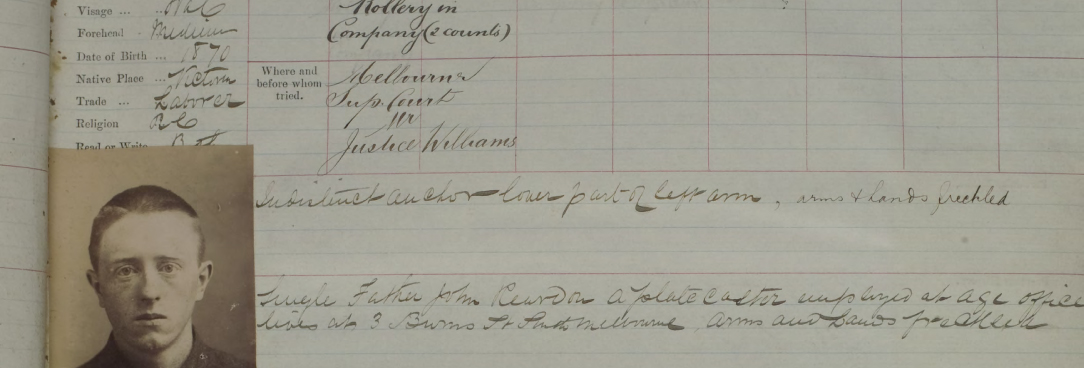 Visage ...
Forehead . Medium
Date of Birth ... 1870
Native Place ... Victoria
Trade ... Laborer
Religion RC
Read or Write Both
in
Company (2 counts)
Where and before whom tried.
Melbourne
Sup. Court
Mr
Justice Williams
Indistinct anchor lower part of left arm, arms & hands freckled
Single Father John Reardon a plate caster employed at age office
lives at 3 Burns St Sth Melbourne, arms and hands freckled